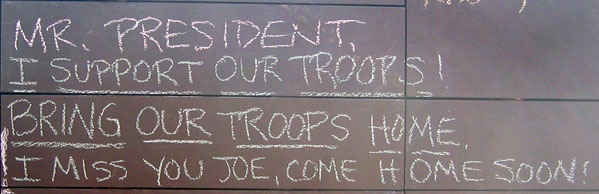 MR. PRESIDENT,
I SUPPORT OUR TROOPS!
BRING OUR TROOPS HOME.
I MISS YOU JOE, COME HOME SOON!